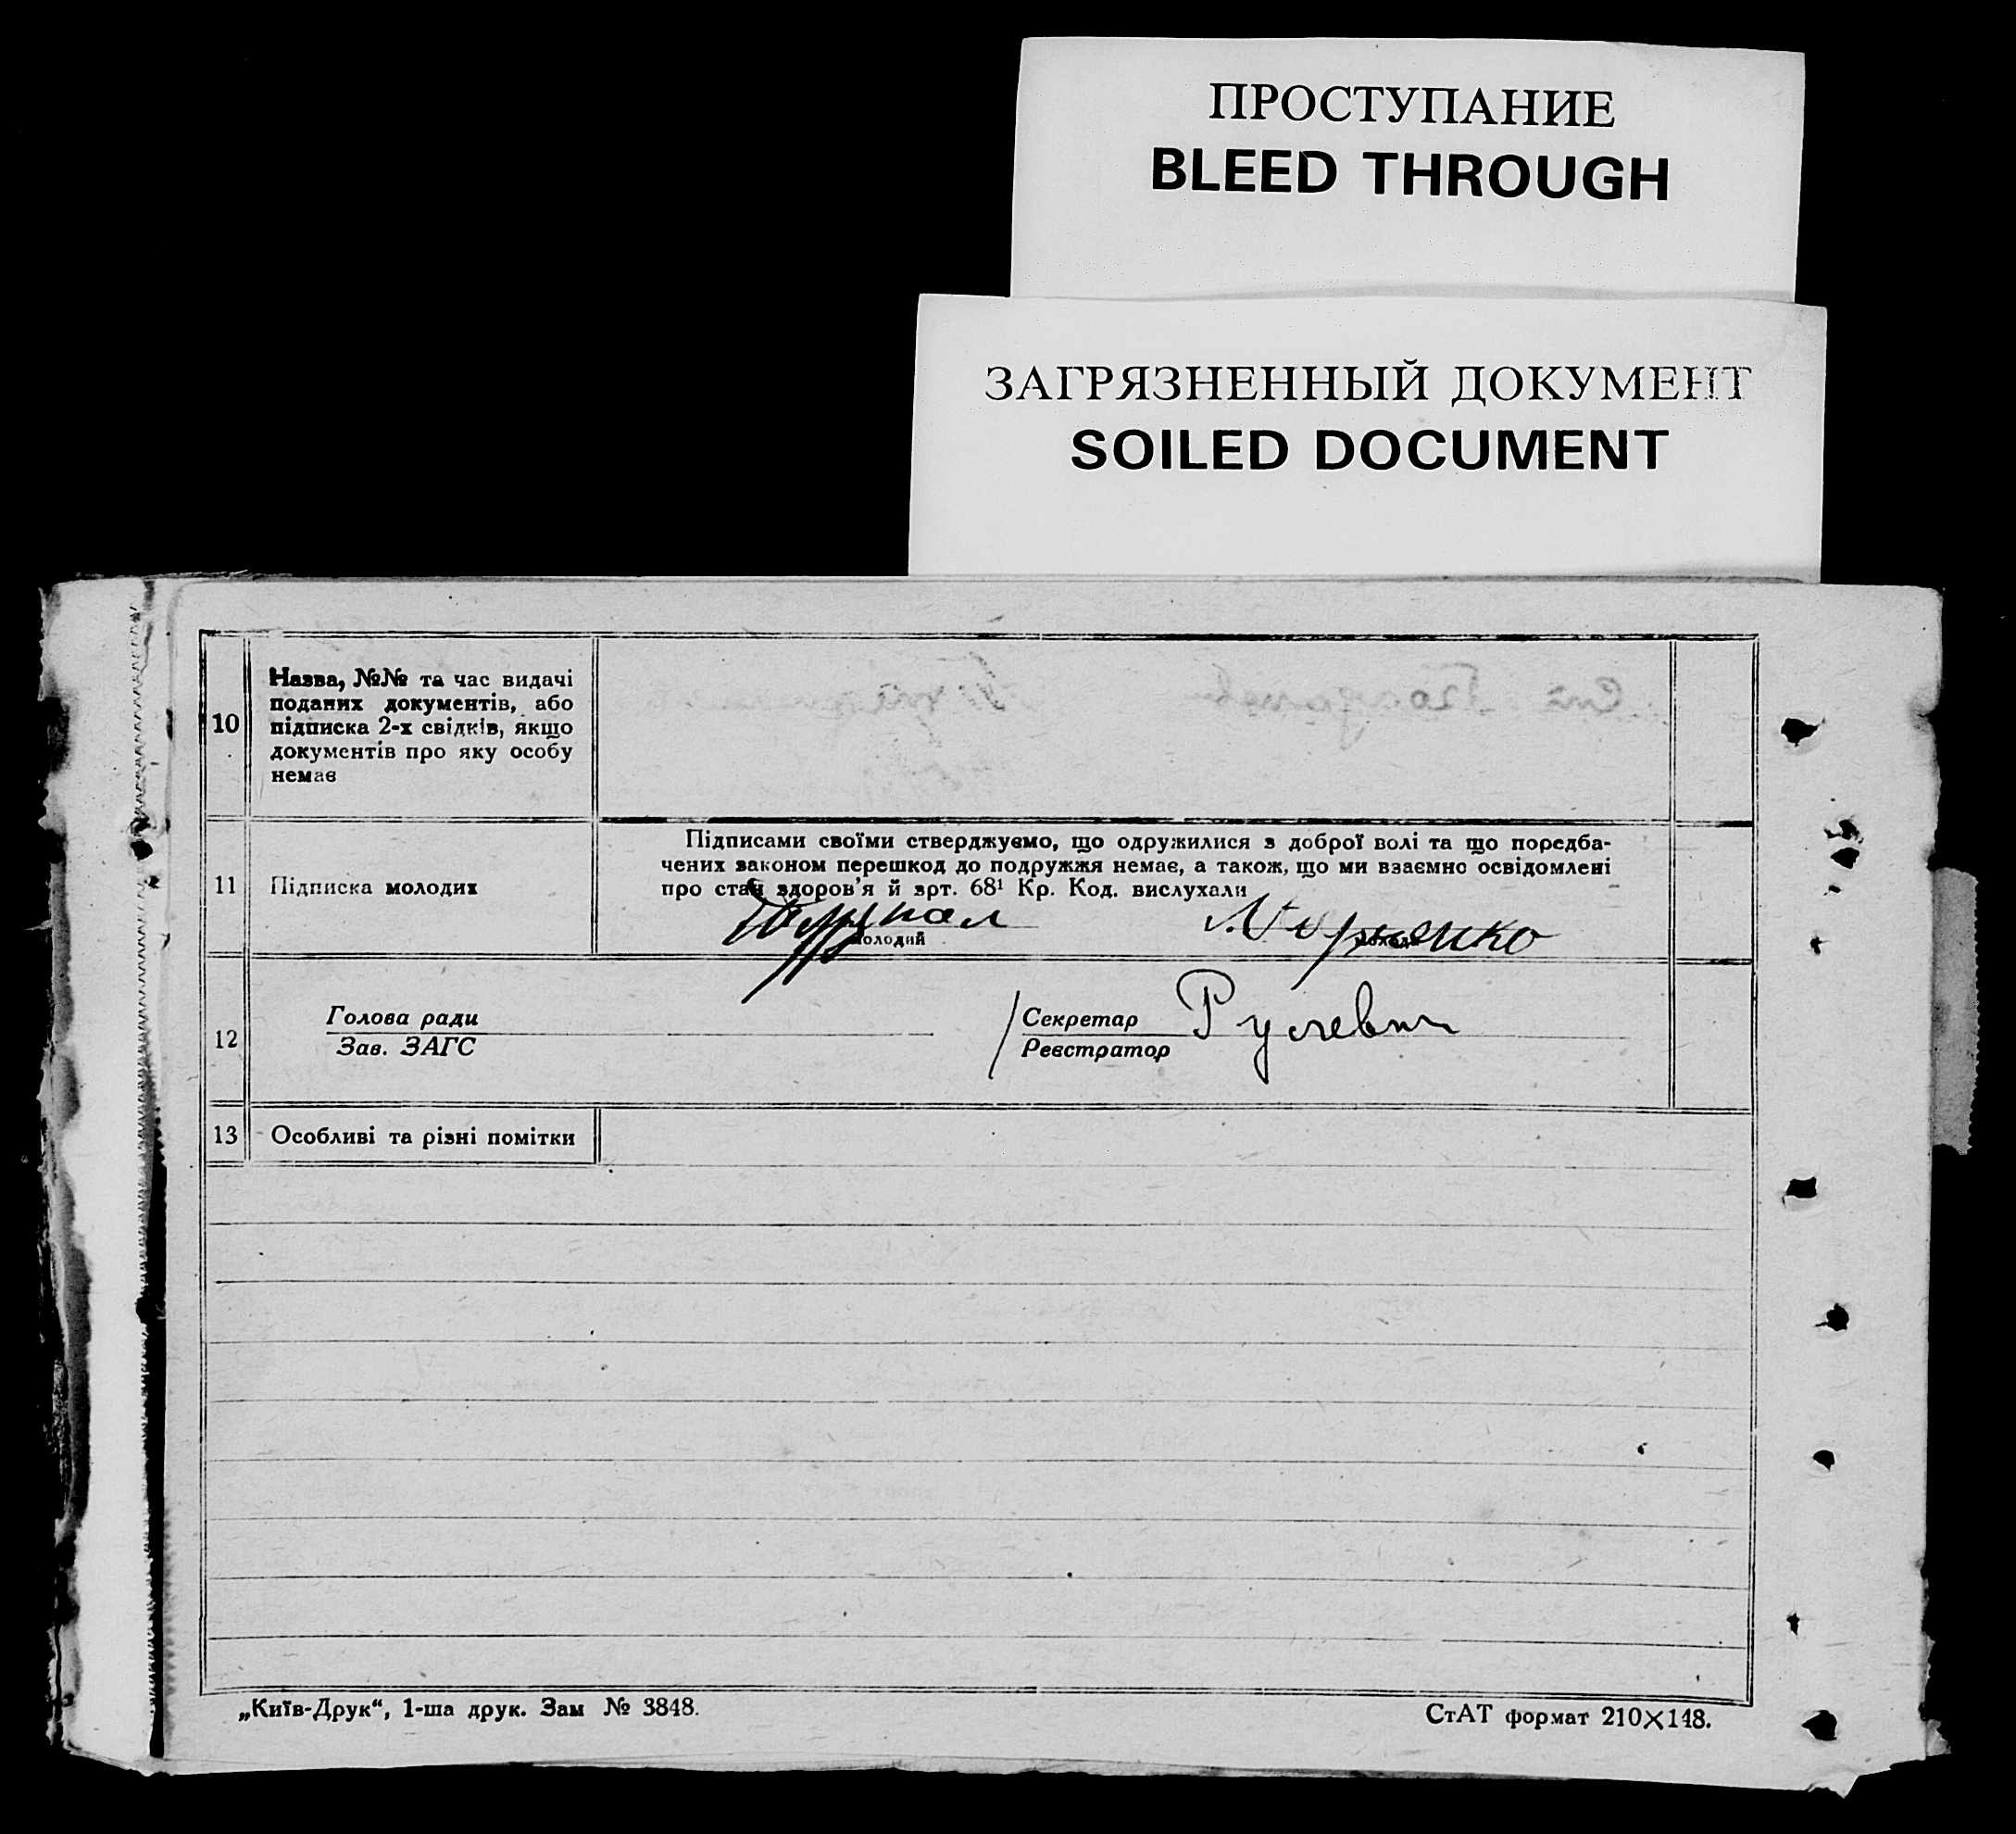 ПРОСТУПАНИЕ
BLEED THROUGH
ЗАГРЯЗНЕННЫЙ ДОКУМЕНТ
SOILED DOCUMENT
10
Назва, №№ та час видачі
поданих документів, або
підписка 2-х свідків, якщо
документів про яку особу
немає
11
Підписка молодих
Підписами своїми стверджуємо, що одружилися з доброї волі та що поредба-
чених законом перешкод до подружжя немає, а також, що ми взаємно освідомлені
про стан здоров'я й арт. 68¹ Кр. Код. вислухали
молодий
молода
12
Голова ради
Зав. ЗАГС
Секретар
Реєстратор
13
Особливі та різні помітки
„Київ-Друк“, 1-ша друк. Зам № 3848.
СтАТ формат 210×148.